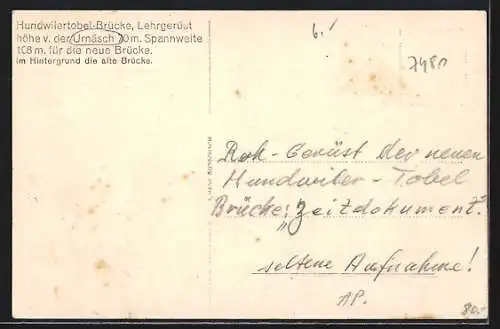 Hundwilertobel-Brücke, Lehrgerüst
höhe v. der Urnäsch 70 m. Spannweite
108 m. für die neue Brücke.
Im Hintergrund die alte Brücke.
6.
7480
Roh - Gerüst der neuen
Hundwiler - Tobel
Brücke: „Zeitdokument".
seltene Aufnahme!
AP.
80.-